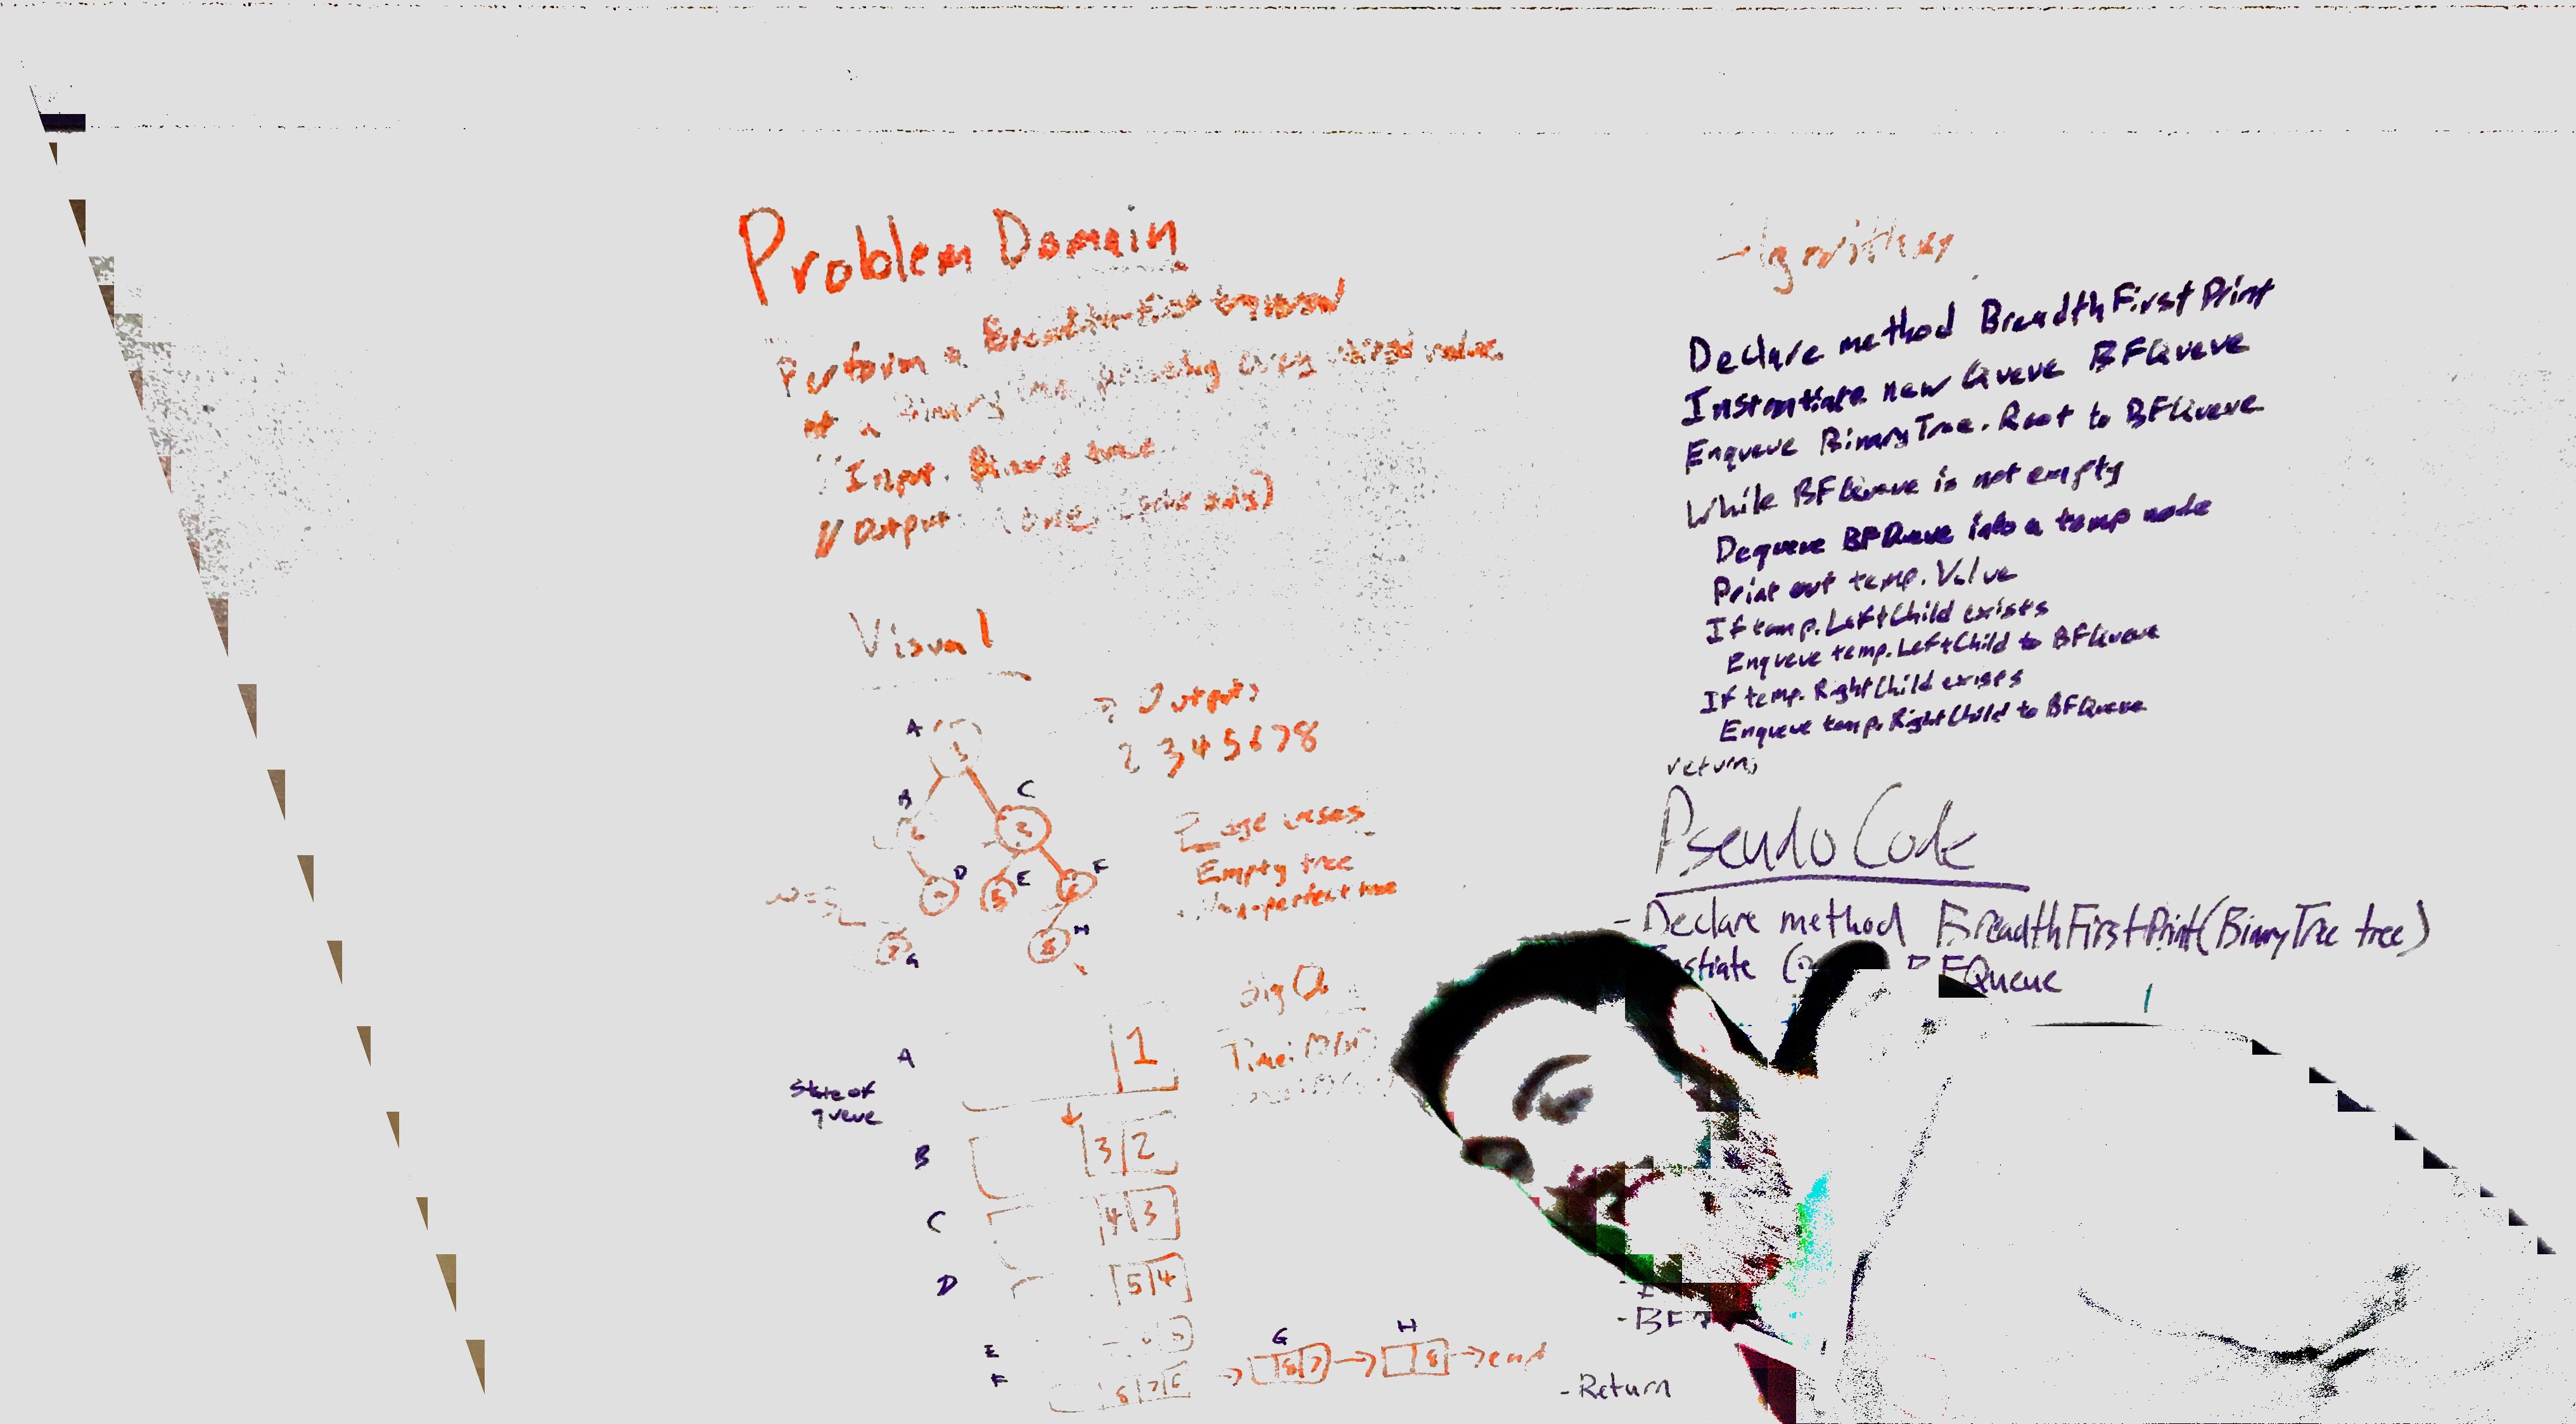 Problem Domain
Perform a Breadth-First traversal
of a Binary tree, printing every visited value.
Input: Binary tree
Output: (print only)
Visual
Output:
2 3 4 5 6 7 8
A
B
C
D
E
F
G
H
Edge cases
Empty tree
Non-perfect tree
Big O
Time:
State of
queue
A
1
B
3 2
C
4 3
D
5 4
E
6 5
F
8 7 6
G
8 7
H
8
end
Algorithm
Declare method BreadthFirstPrint
Instantiate new Queue BFQueue
Enqueue BinaryTree.Root to BFQueue
While BFQueue is not empty
Dequeue BFQueue into a temp node
Print out temp.Value
If temp.LeftChild exists
Enqueue temp.LeftChild to BFQueue
If temp.RightChild exists
Enqueue temp.RightChild to BFQueue
return;
Pseudo Code
- Declare method BreadthFirstPrint(BinaryTree tree)
BFQueue
- Return